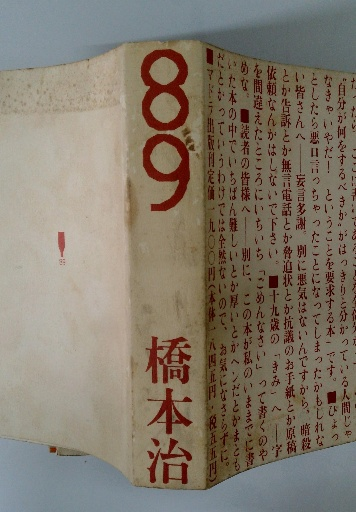 89
橋本治
"自分が何をするべきか"がはっきりと分かっている人間じゃ
なきゃいやだ！　ということを要求する本"です。■ひょっ
としたら悪口言っちゃったことになってしまったかもしれな
い皆さんへ――妄言多謝。別に悪気はないんですから、暗殺
とか告訴とか無言電話とか脅迫状とか抗議のお手紙とか原稿
依頼なんかはしないで下さい。■十九歳の「きみ」へ――字
を間違えたところにいちいち「ごめんなさい」って書くのや
めな。■読者の皆様へ――別に、この本が私のいままでに書
いた本の中でいちばん難しいとか厚いとかヘンだとかまとも
だとかっていうわけでは全然ないので、お気になさらずに。
■マドラ出版刊定価一九〇〇円（本体一八四五円・税五五円）